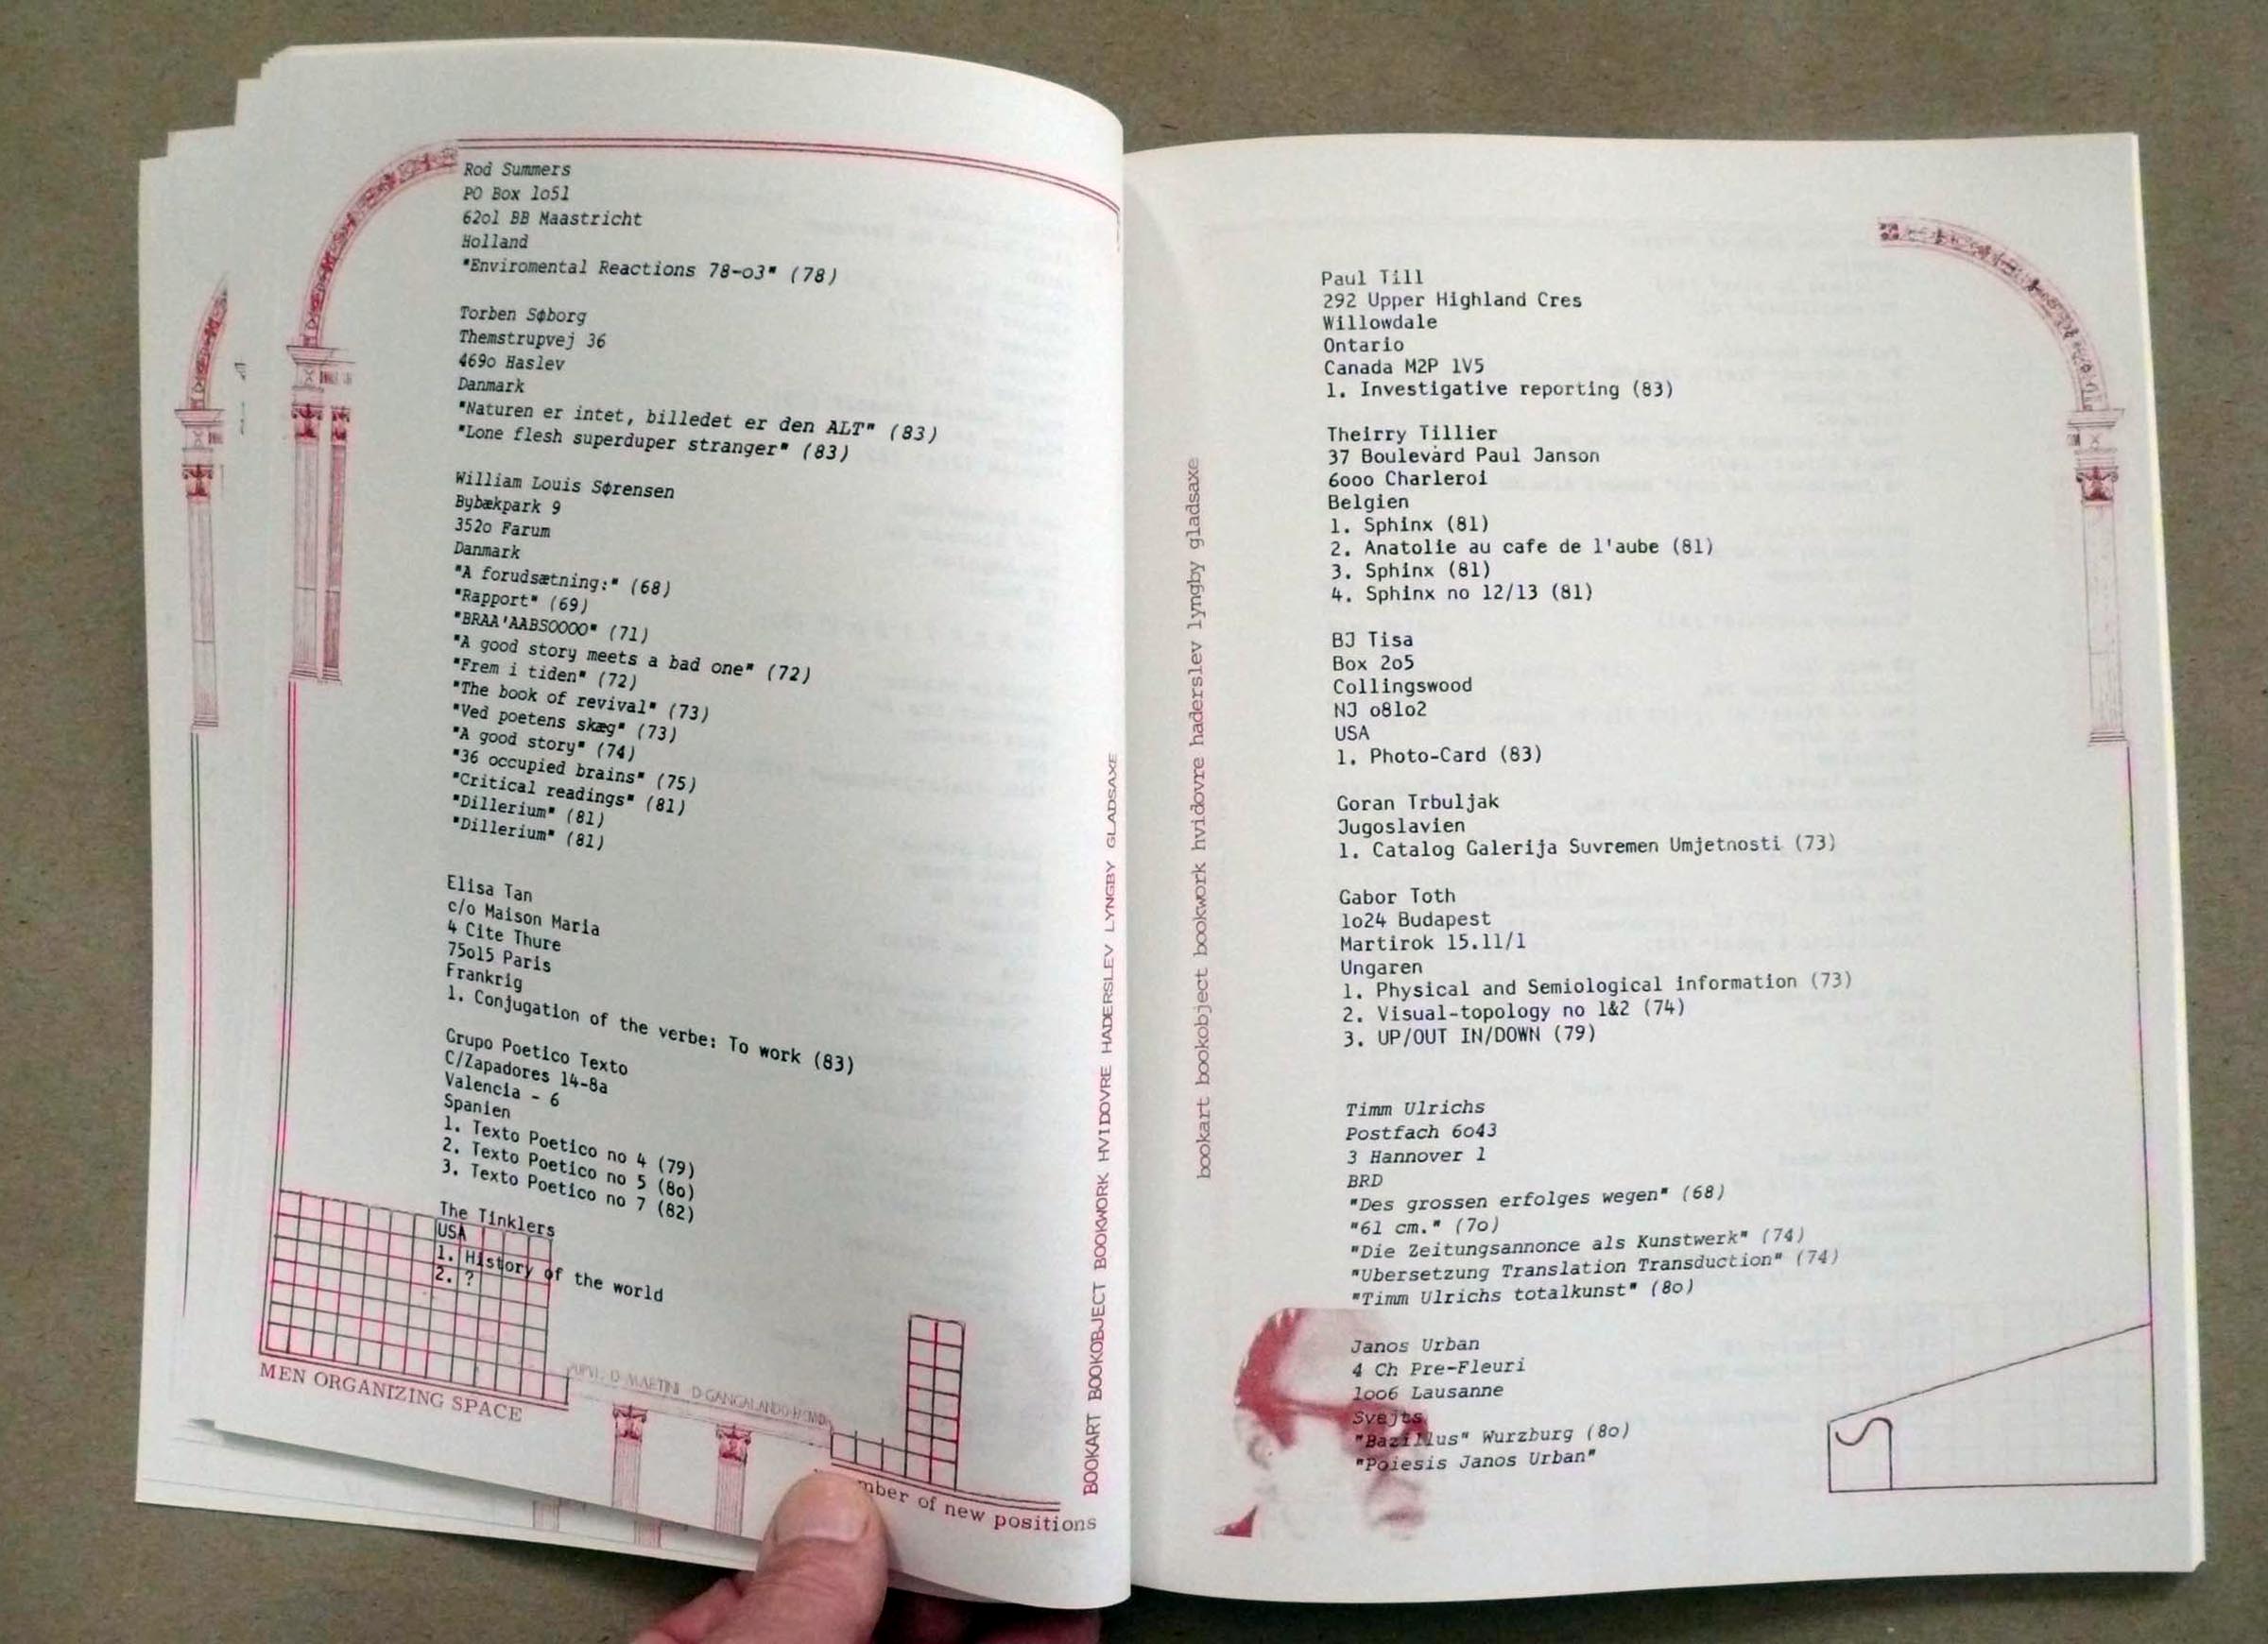 Rod Summers
PO Box 1o51
62o1 BB Maastricht
Holland
"Enviromental Reactions 78-o3" (78)
Torben Søborg
Themstrupvej 36
469o Haslev
Danmark
"Naturen er intet, billedet er den ALT" (83)
"Lone flesh superduper stranger" (83)
William Louis Sørensen
Bybækpark 9
352o Farum
Danmark
"A forudsætning:" (68)
"Rapport" (69)
"BRAA'AABSOOOO" (71)
"A good story meets a bad one" (72)
"Frem i tiden" (72)
"The book of revival" (73)
"Ved poetens skæg" (73)
"A good story" (74)
"36 occupied brains" (75)
"Critical readings" (81)
"Dillerium" (81)
"Dillerium" (81)
Elisa Tan
c/o Maison Maria
4 Cite Thure
75o15 Paris
Frankrig
1. Conjugation of the verbe: To work (83)
Grupo Poetico Texto
C/Zapadores 14-8a
Valencia - 6
Spanien
1. Texto Poetico no 4 (79)
2. Texto Poetico no 5 (8o)
3. Texto Poetico no 7 (82)
The Tinklers
USA
1. History of the world
2. ?
MEN ORGANIZING SPACE
D MARTINI D GANGALANDO
of new positions
BOOKART BOOKOBJECT BOOKWORK HVIDOVRE HADERSLEV LYNGBY GLADSAXE
bookart bookobject bookwork hvidovre haderslev lyngby gladsaxe
Paul Till
292 Upper Highland Cres
Willowdale
Ontario
Canada M2P 1V5
1. Investigative reporting (83)
Theirry Tillier
37 Boulevard Paul Janson
6ooo Charleroi
Belgien
1. Sphinx (81)
2. Anatolie au cafe de l'aube (81)
3. Sphinx (81)
4. Sphinx no 12/13 (81)
BJ Tisa
Box 2o5
Collingswood
NJ o81o2
USA
1. Photo-Card (83)
Goran Trbuljak
Jugoslavien
1. Catalog Galerija Suvremen Umjetnosti (73)
Gabor Toth
1o24 Budapest
Martirok 15.11/1
Ungaren
1. Physical and Semiological information (73)
2. Visual-topology no 1&2 (74)
3. UP/OUT IN/DOWN (79)
Timm Ulrichs
Postfach 6o43
3 Hannover 1
BRD
"Des grossen erfolges wegen" (68)
"61 cm." (7o)
"Die Zeitungsannonce als Kunstwerk" (74)
"Ubersetzung Translation Transduction" (74)
"Timm Ulrichs totalkunst" (8o)
Janos Urban
4 Ch Pre-Fleuri
1oo6 Lausanne
Svejts
"Bazillus" Wurzburg (8o)
"Poiesis Janos Urban"